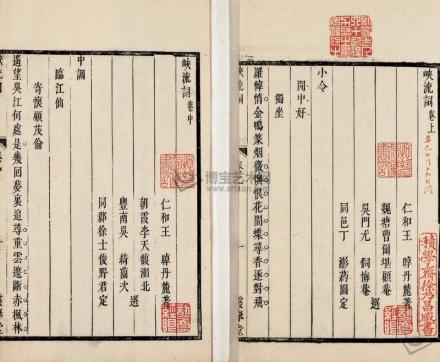 峽流詞卷上
仁和王 晫丹麓著
魏塘曹爾堪顧菴
吳門尤 侗悔菴 選
同邑丁 澎葯園定
小令
閒中好
獨坐
羅幃悄金鴨篆烟微懊恨花間蝶尋香逐對飛
積學齋徐乃昌藏書
峽流詞卷中
仁和王 晫丹麓著
朝霞李天馥湘北
豐南吳 綺薗次 選
同郡徐士俊野君定
中調
臨江仙
寄懷顧茂倫
遙望吳江何處是幾回夢裏追尋重雲遮斷赤楓林
霞舉堂
博宝艺术网